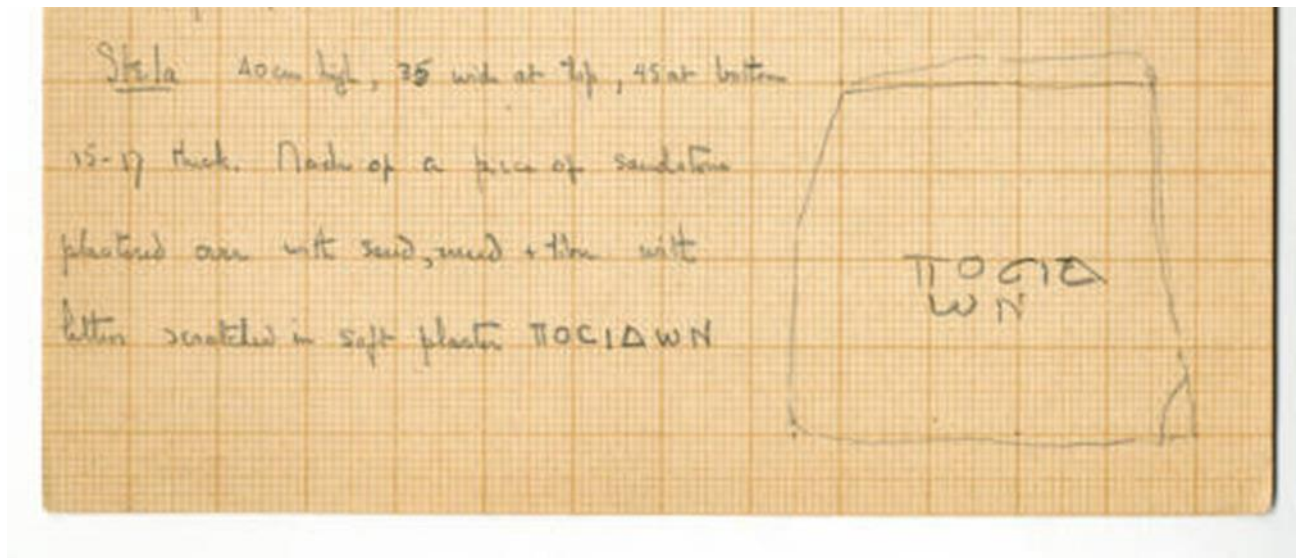 Stela 40cm high, 35 wide at top, 45 at bottom
15-17 thick. Made of a piece of sandstone
plastered over with sand, mud + lime with
letters scratched in soft plaster ΠΟCΙΔWN
ΠΟCΙΔ
WN